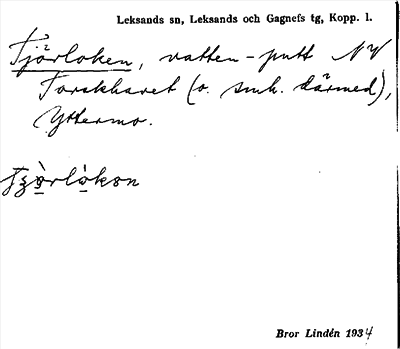 Leksands sn, Leksands och Gagnefs tg, Kopp. l.
Tjärloken, vatten-putt NV
Torskharet (o. smh. därmed),
Yttermo.
Bror Lindén 1934